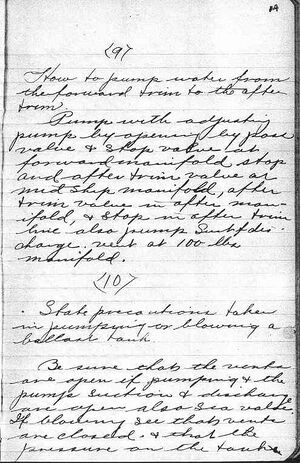 19
(9)
How to pump water from
the forward trim to the after
trim.
Pump with adjusting
pump by opening by pass
valve & Stop valve at
forward manifold stop
and after trim valve at
mid ship manifold, after
trim valve in after man-
ifold, & Stop in after trim
line also pump Suct/dis-
charge. vent at 100 lbs
manifold.
(10)
State precautions taken
in pumping or blowing a
ballast tank.
Be sure that the vents
are open if pumping & the
pump suction & discharge
are open also sea valve.
If blowing see that vents
are closed. & that the
pressure on the tank